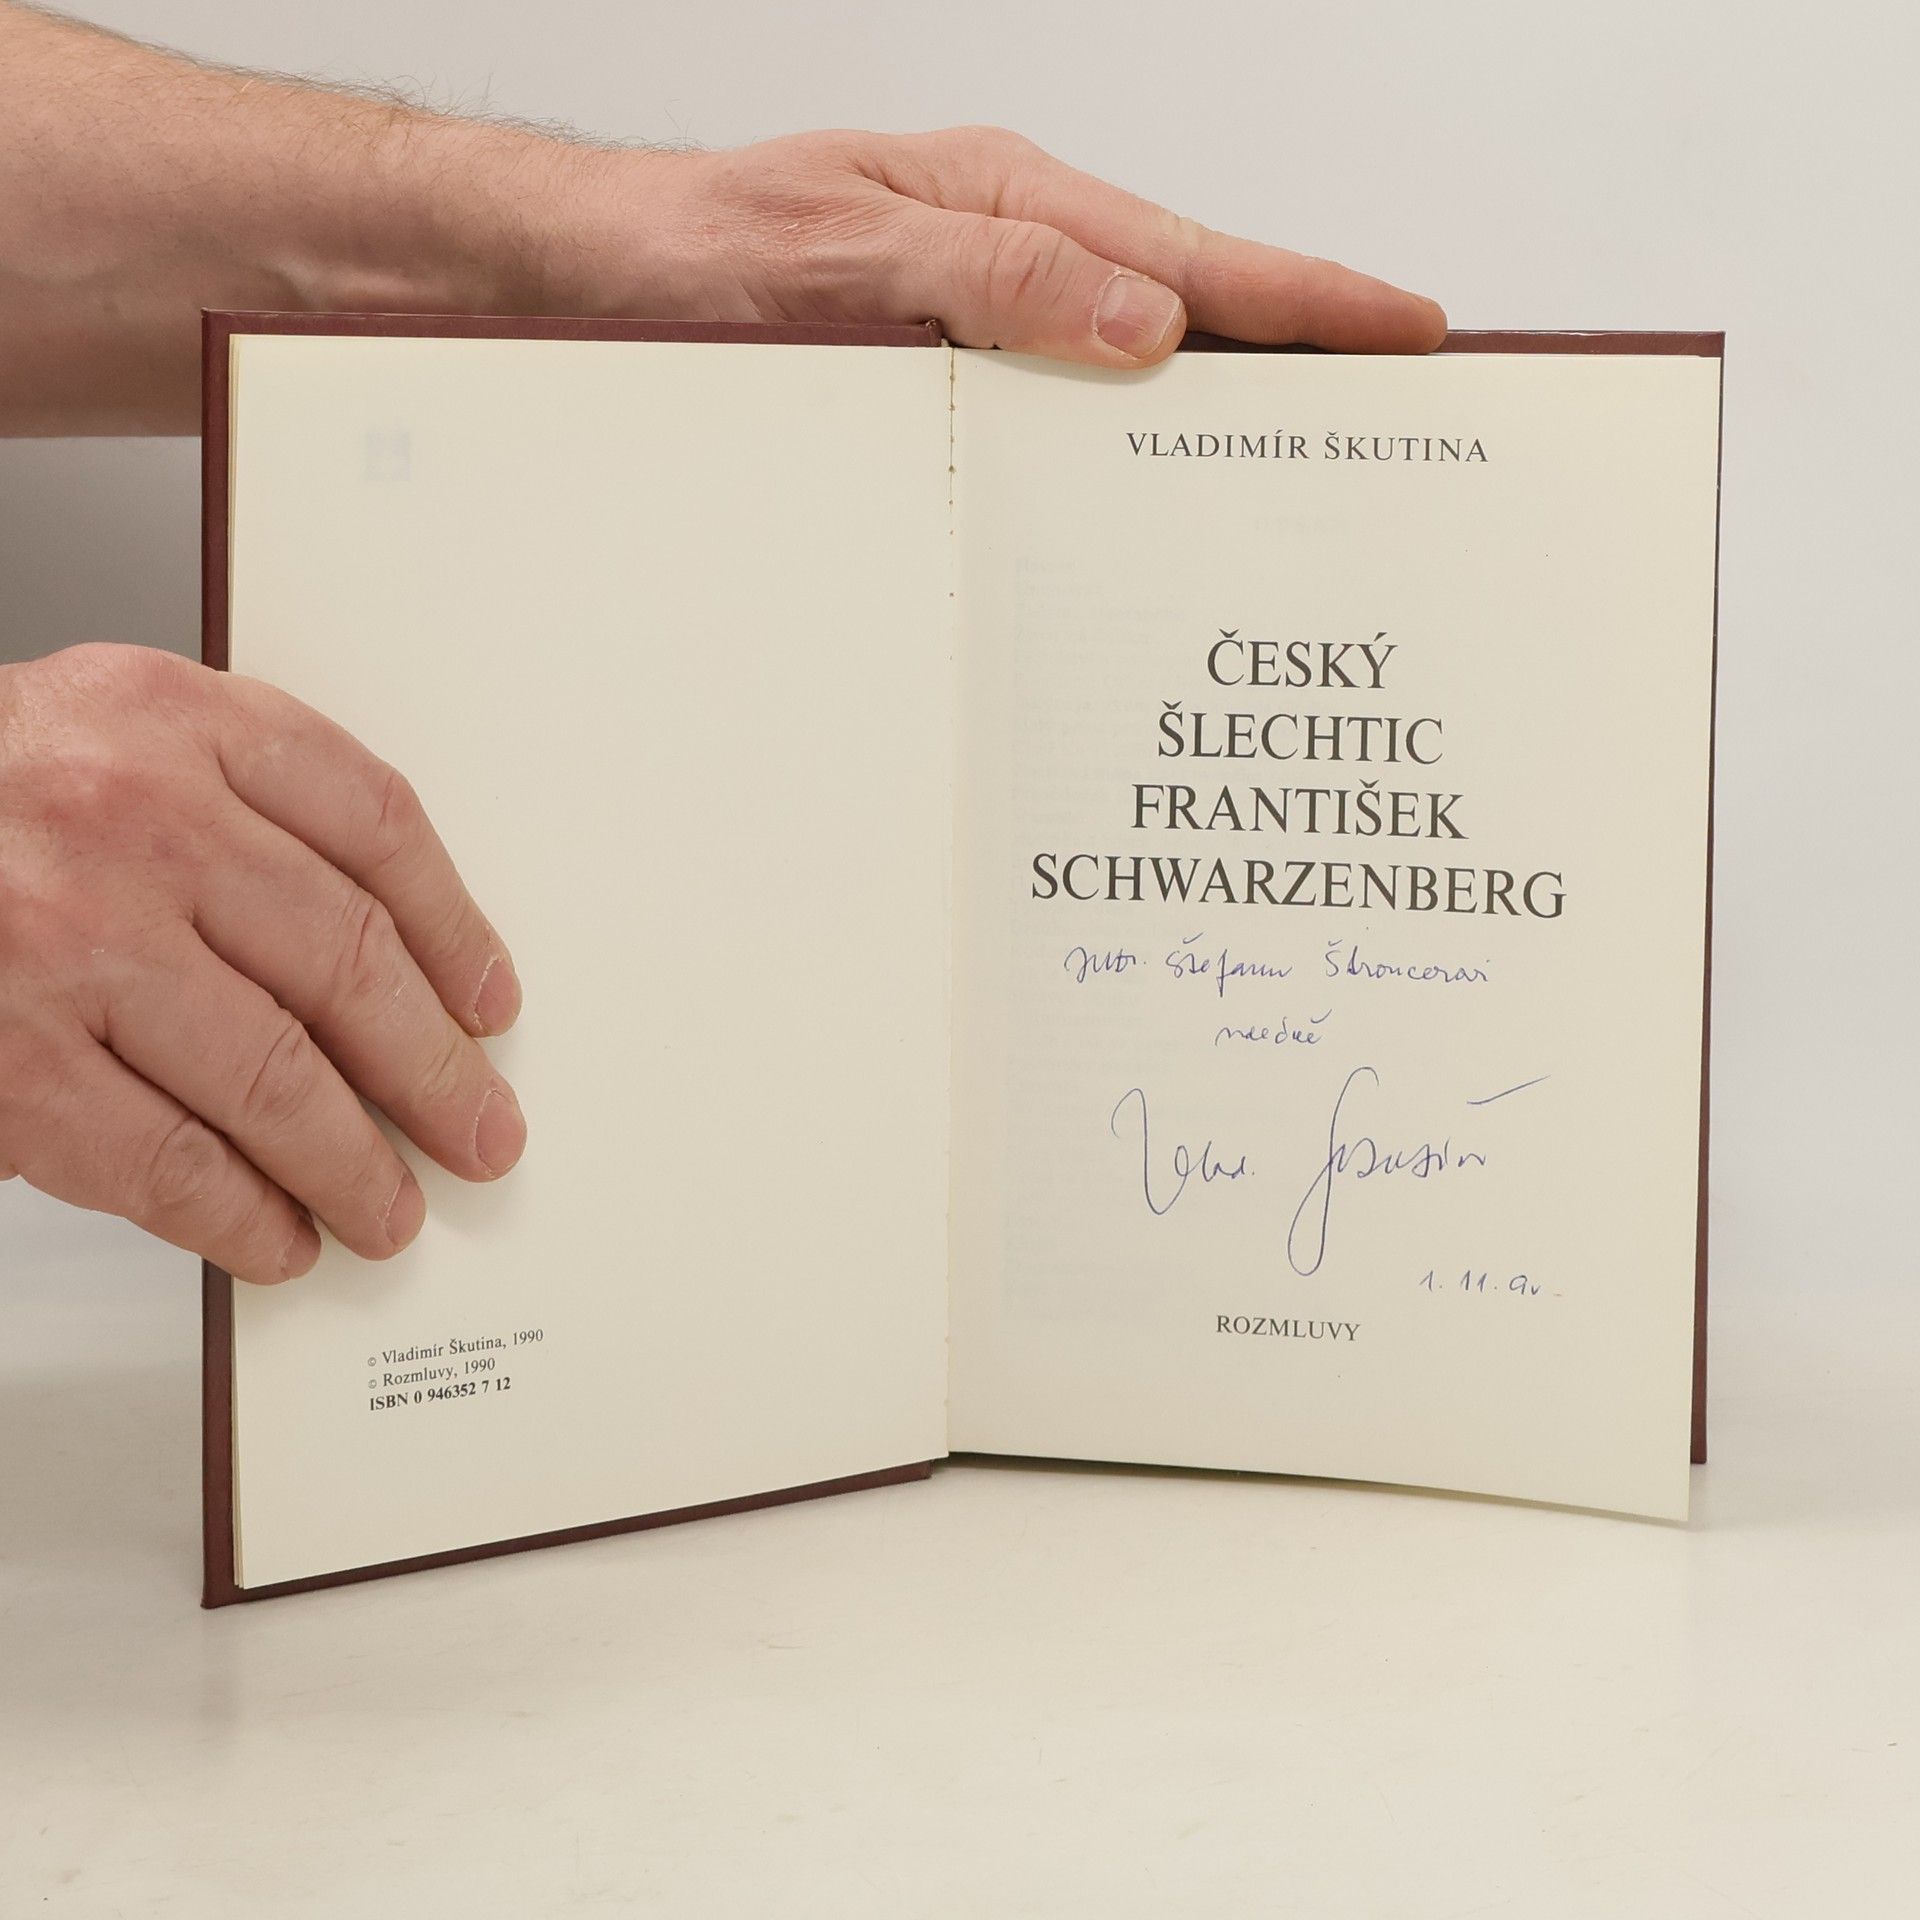 © Vladimír Škutina, 1990
© Rozmluvy, 1990
ISBN 0 946352 7 12
VLADIMÍR ŠKUTINA
ČESKÝ
ŠLECHTIC
FRANTIŠEK
SCHWARZENBERG
JUDr. Štefanu
srdečně
Vlad. Škutina
1. 11. 90
ROZMLUVY